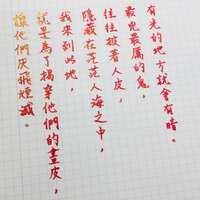 有光的地方就會有暗。
最兇最厲的鬼，
往往披著人皮，
隱藏在茫茫人海之中，
我來到此地，
就是為了揭穿他們的畫皮，
讓他們灰飛煙滅。